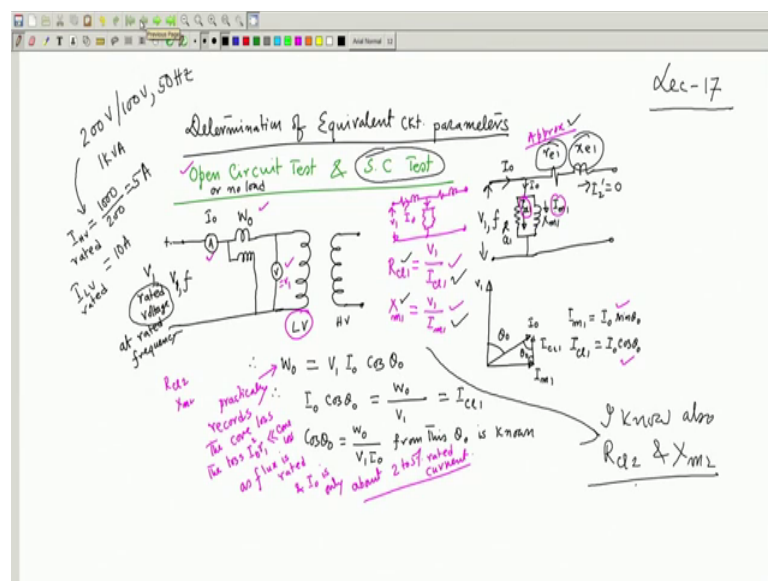 Previous Page
Arial Normal 12
Lec-17
200V/100V, 50Hz
1KVA
I HV rated = 1000/200 = 5A
I LV rated = 10A
Determination of Equivalent CKt. parameters
Open Circuit Test & S.C Test
or no load
Approx
re1 xe1
I0 I0 → I2' = 0
V1, f Rcl1 Icl1 Im1 Xm1
I0 W0
A
V = V1
V1 rated voltage V1, f
at rated frequency
LV HV
V1 I0
Rcl1 = V1/Icl1
Xm1 = V1/Im1
V1 θ0 I0 Icl1 θ0 Im1
Im1 = I0 sinθ0
Icl1 = I0 cosθ0
∴ W0 = V1 I0 Cosθ0
∴ I0 Cosθ0 = W0/V1 = Icl1
Cosθ0 = W0/V1I0 from This θ0 is known
Rcl2
Xm2
practically records The core loss
The loss I0²r1 << Core loss
as flux is rated
& I0 is only about 2 to 5% rated current.
I know also
Rcl2 & Xm2